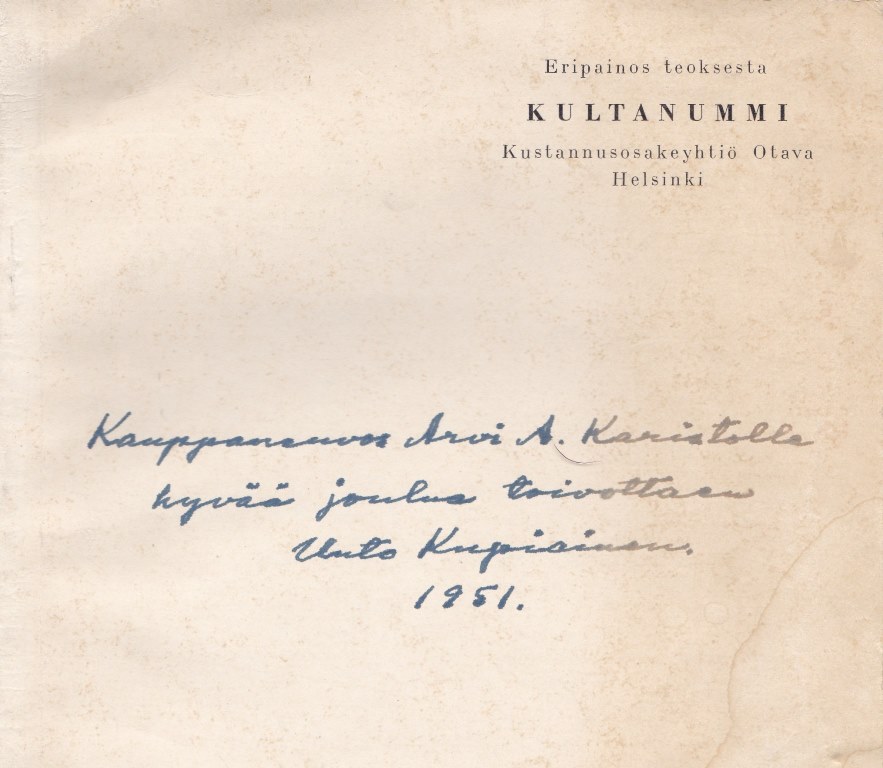 Eripainos teoksesta
KULTANUMMI
Kustannusosakeyhtiö Otava
Helsinki
Kauppaneuvos Arvi A. Karistolle
hyvää joulua toivottaen
Unto Kupiainen.
1951.